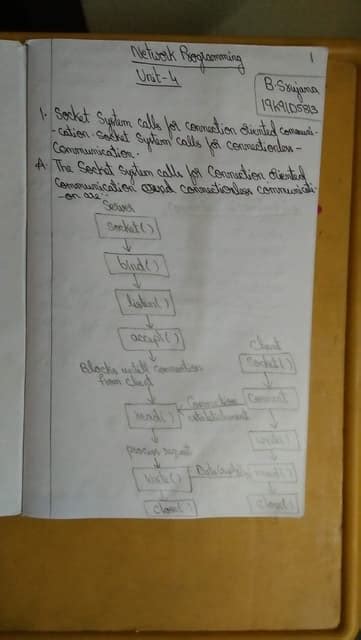 Network Programming
Unit-4
1
B. Srujana
19K91D5813
1. Socket System calls for connection oriented communi-
-cation. Socket System calls for connectionless -
Communication.
A. The Socket System calls for Connection Oriented
Communication and connectionless communicati-
-on are :-
Server
socket()
bind()
listen()
accept()
Blocks untill connection
from client
Client
Socket()
Connect
Connection
establishment
read()
write()
process request
write()
Data(reply)
read()
Close()
Close()